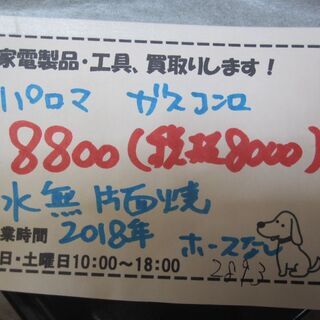 家電製品・工具、買取りします!
パロマ ガスコンロ
8800(税抜8000)
水無片面焼
業時間 2018年 ホースなし
日・土曜日10:00~18:00 2893